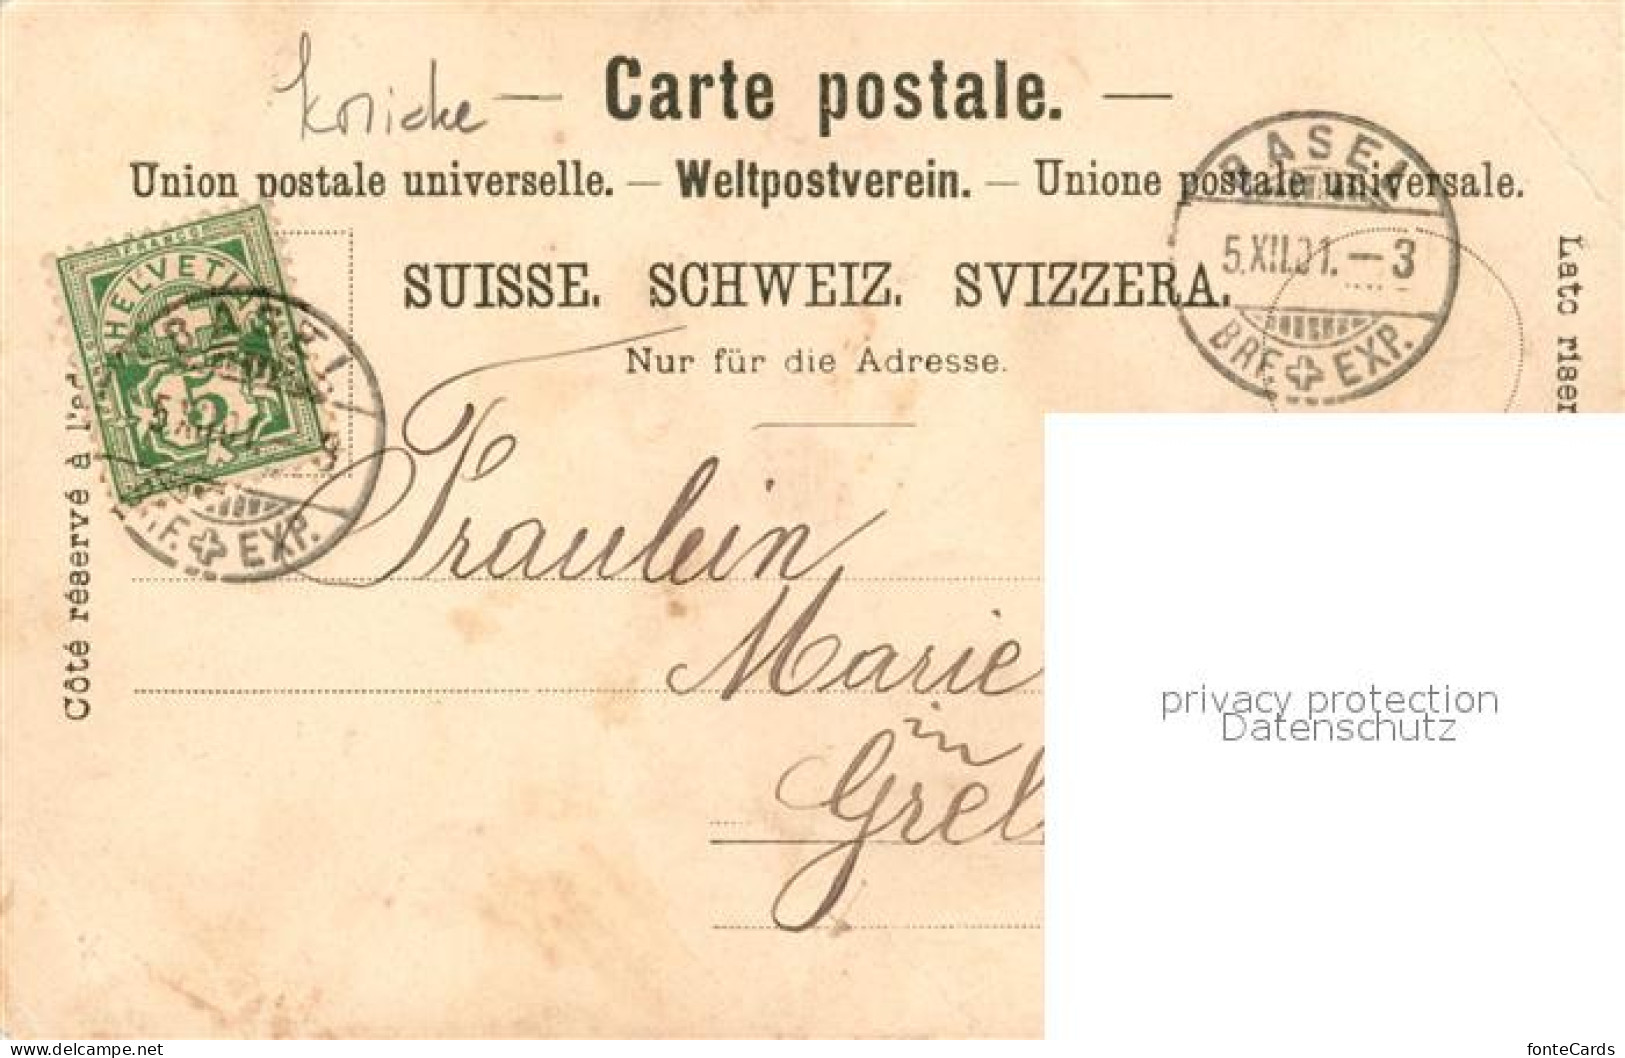 — Carte postale. —
Union postale universelle. — Weltpostverein. — Unione postale universale.
SUISSE. SCHWEIZ. SVIZZERA.
Nur für die Adresse.
BASEL
5.XII.01. – 3
BRF. EXP.
FRANCO
HELVETIA
5
BASEL
EXP.
Côté réservé à l'ad
Lato riser
Fräulein
Marie
in
Grel
privacy protection
Datenschutz
delcampe.net
fonteCards